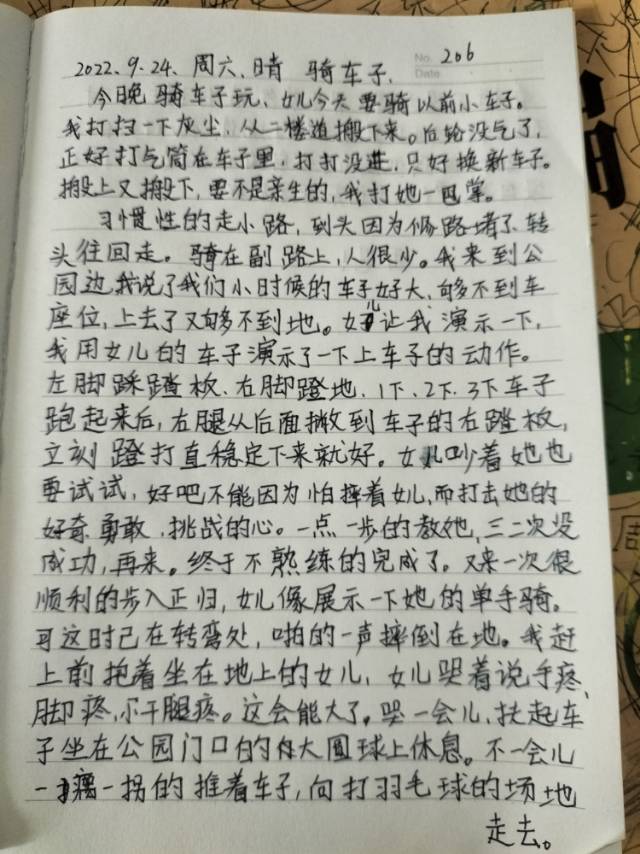 No. 206
Date
2022.9.24.周六.晴 骑车子.
今晚骑车子玩、女儿今天要骑以前小车子。
我打扫一下灰尘,从二楼道搬下来。后轮没气了,
正好打气筒在车子里,打打没进,只好换新车子。
搬上又搬下,要不是亲生的,我打她一巴掌。
习惯性的走小路,到头因为修路堵了、转
头往回走。骑在副路上,人很少。我来到公
园边,我说了我们小时候的车子好大、够不到车
座位,上去了又够不到地。女儿让我演示一下,
我用女儿的车子演示了一下上车子的动作。
左脚踩蹬板、右脚蹬地、1下、2下、3下车子
跑起来后,右腿从后面撇到车子的右蹬板,
立刻蹬打直稳定下来就好。女儿吵着她也
要试试,好吧不能因为怕摔着女儿,而打击她的
好奇勇敢,挑战的心。一点一步的教她,三二次没
成功,再来。终于不熟练的完成了。又来一次很
顺利的步入正归,女儿像展示一下她的单手骑。
可这时已在转弯处,啪的一声摔倒在地。我赶
上前抱着坐在地上的女儿,女儿哭着说手疼、
脚疼,小腿疼。这会能大了。哭一会儿,扶起车
子坐在公园门口的大圆球上休息。不一会儿
一瘸一拐的推着车子,向打羽毛球的场地
走去。